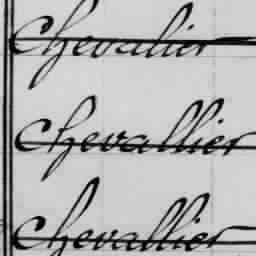 Chevalier
Chevallier
Chevallier